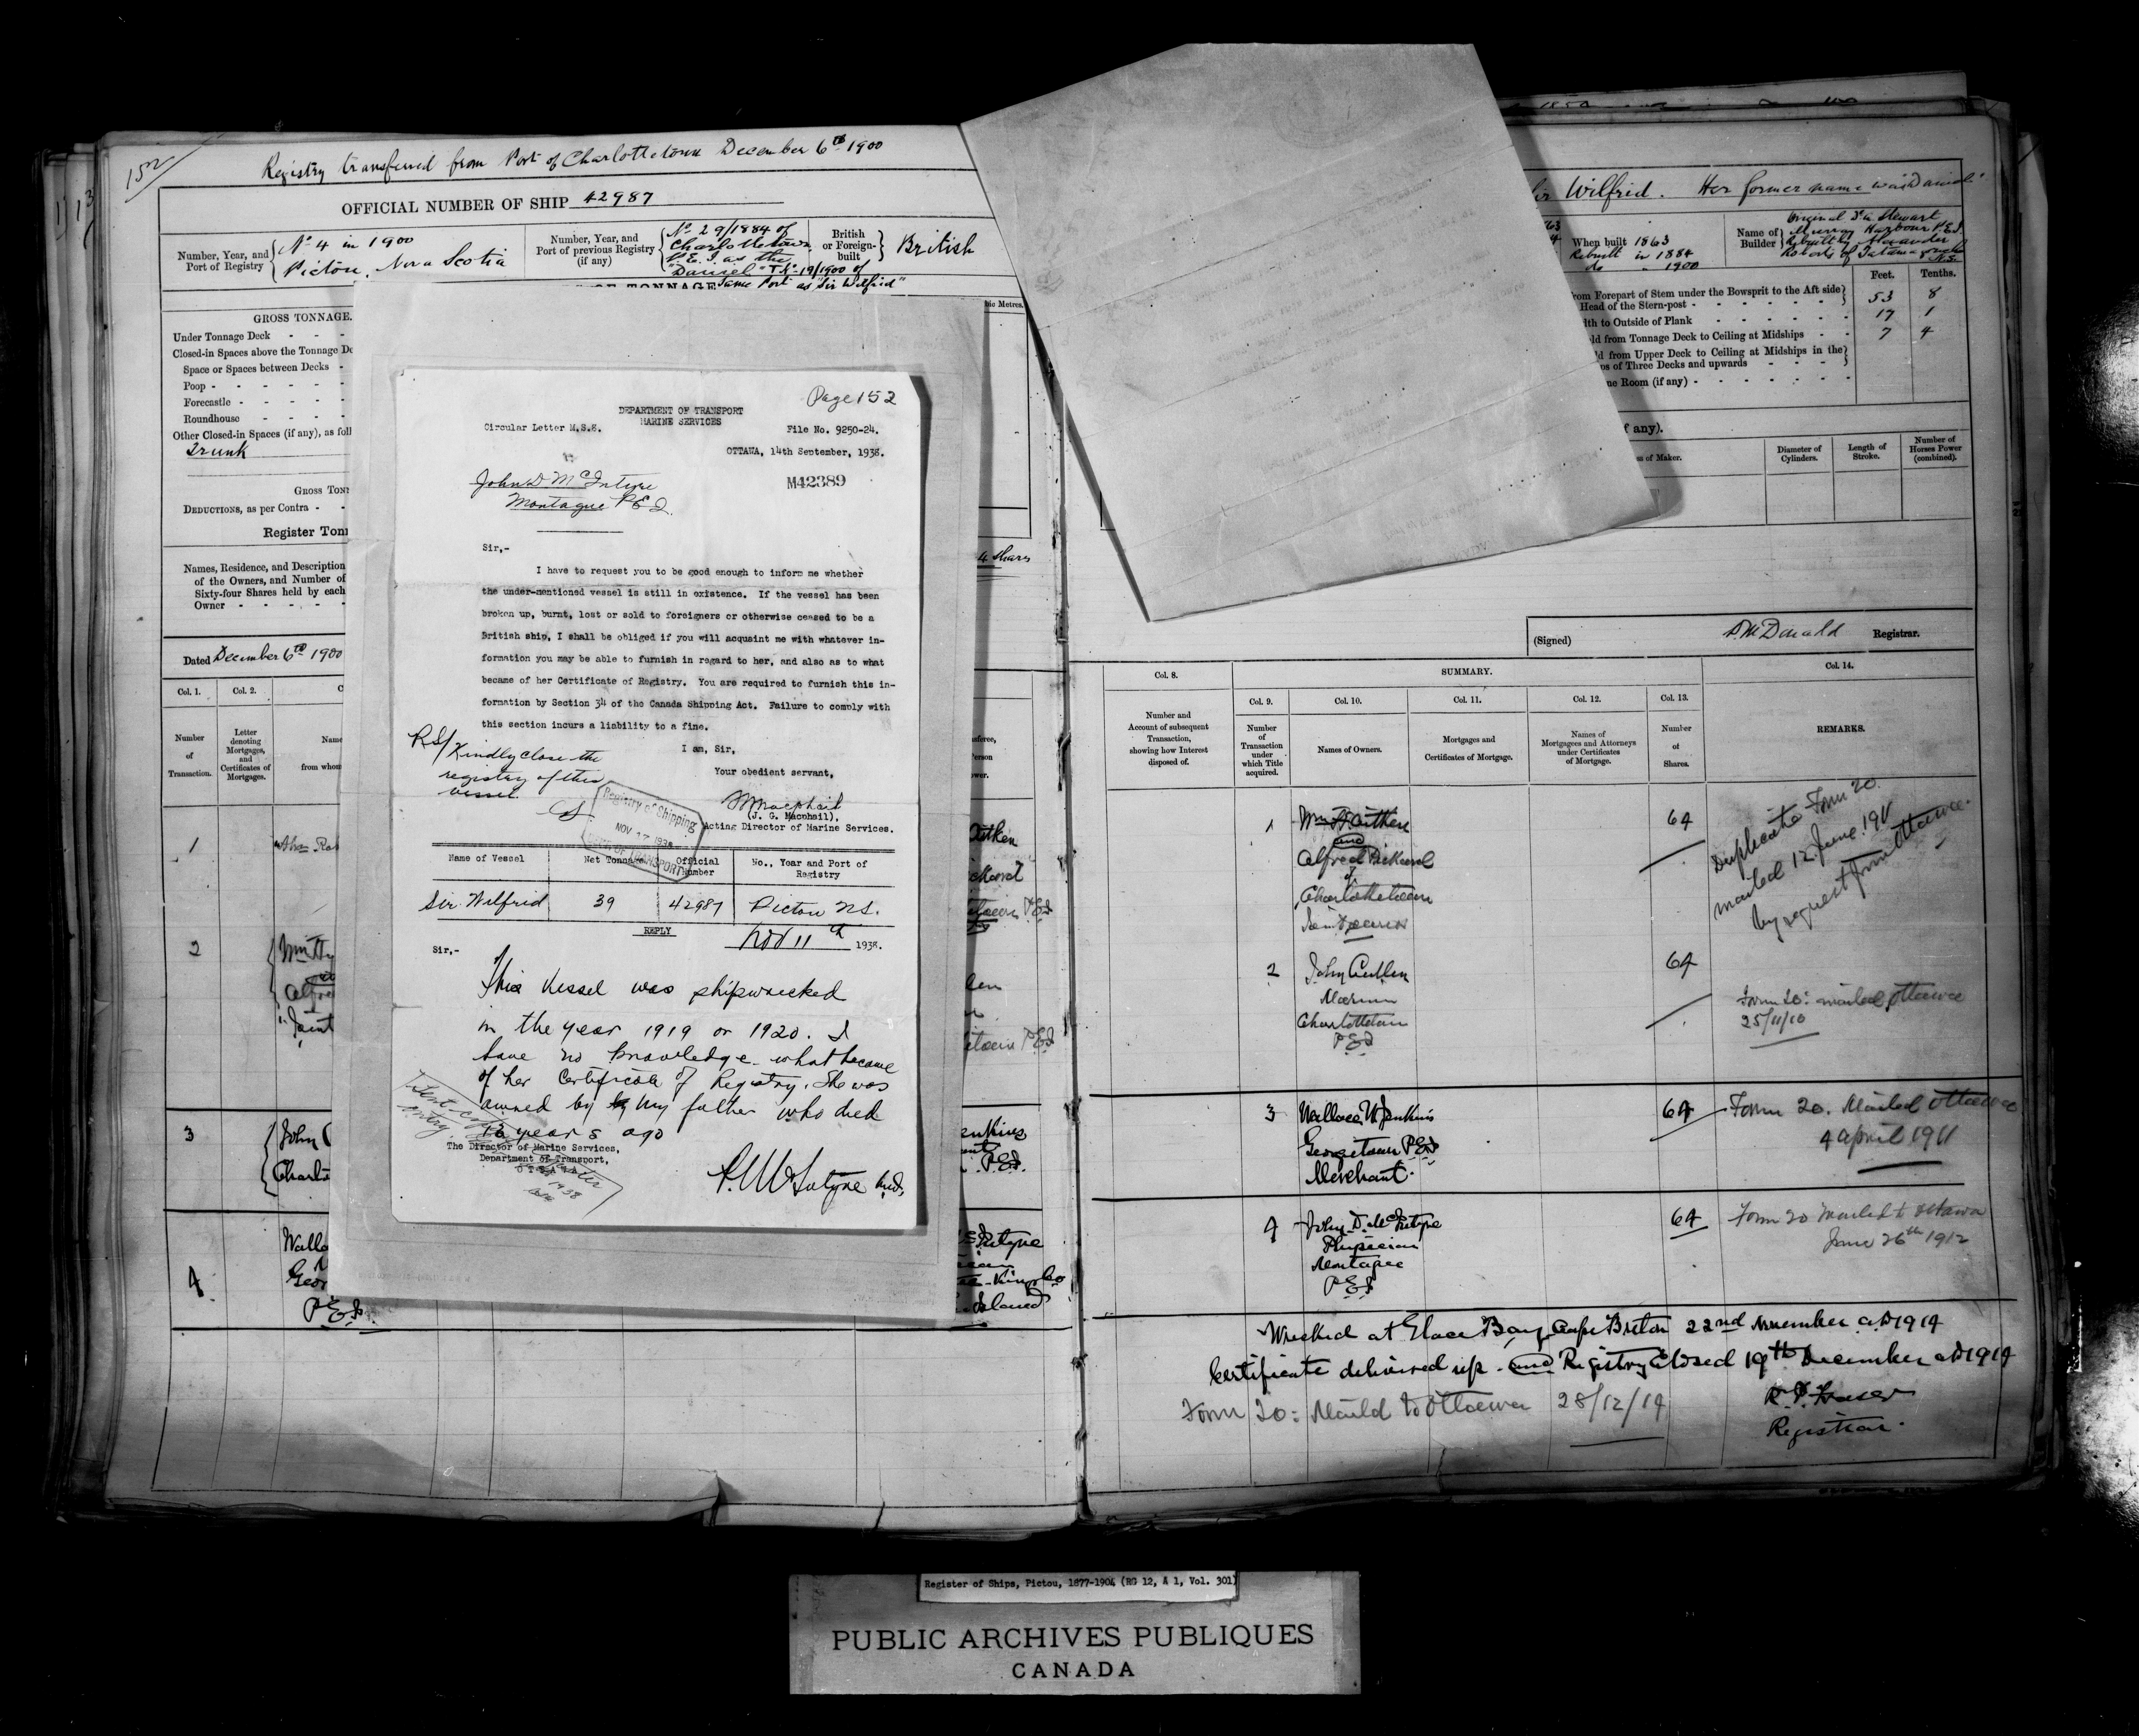 152
Registry transferred from Port of Charlottetown December 6th 1900
OFFICIAL NUMBER OF SHIP 42987
Number, Year, and Port of Registry
No 4 in 1900
Pictou, Nova Scotia
Number, Year, and Port of previous Registry (if any)
No 29/1884 of
Charlottetown
P.E.I. as the
"Daniel" 19/1900 of
Same Port as "Sir Wilfrid"
British or Foreign-built
British
GROSS TONNAGE.
Under Tonnage Deck
Closed-in Spaces above the Tonnage De
Space or Spaces between Decks
Poop
Forecastle
Roundhouse
Other Closed-in Spaces (if any), as foll
Trunk
GROSS TON
DEDUCTIONS, as per Contra
Register Ton
Names, Residence, and Description
of the Owners, and Number of
Sixty-four Shares held by each
Owner
4 Shares
Dated December 6th 1900
Col. 1.
Col. 2.
Number of Transaction.
Letter denoting Mortgages, and Certificates of Mortgages.
Name
from whom
1
2
3
John
Charlo
4
Walla
Geor
P.E.I.
Page 152
DEPARTMENT OF TRANSPORT
MARINE SERVICES
Circular Letter M.S.S.
File No. 9250-24.
OTTAWA, 14th September, 1938.
John D McIntyre
Montague P E I.
M42389
Sir,-
I have to request you to be good enough to inform me whether
the under-mentioned vessel is still in existence. If the vessel has been
broken up, burnt, lost or sold to foreigners or otherwise ceased to be a
British ship, I shall be obliged if you will acquaint me with whatever in-
formation you may be able to furnish in regard to her, and also as to what
became of her Certificate of Registry. You are required to furnish this in-
formation by Section 34 of the Canada Shipping Act. Failure to comply with
this section incurs a liability to a fine.
I am, Sir,
Your obedient servant,
(J. G. Macphail),
Acting Director of Marine Services.
RS/ Kindly close the
registry of this
vessel.
Registry of Shipping
NOV 17 1938
DEPT OF TRANSPORT
Name of Vessel
Net Tonnage
Official Number
No., Year and Port of Registry
Sir Wilfrid
39
42987
Pictou N.S.
REPLY
Nov 11th 1938.
Sir,-
This vessel was shipwrecked
in the year 1919 or 1920. I
have no knowledge what became
of her Certificate of Registry. She was
owned by my father who died
years ago
The Director of Marine Services,
Department of Transport,
OTTAWA
McIntyre M.D.
Wilfrid. Her former name was "Daniel"
When built 1863
Rebuilt in 1884
do " 1900
Name of Builder
Original Stewart
Murray Harbour P.E.I.
Rebuilt by Alexander
Roberts of Tatamagouche
N.S.
Feet.
Tenths.
rom Forepart of Stem under the Bowsprit to the Aft side
Head of the Stern-post
53 8
dth to Outside of Plank
17 1
ld from Tonnage Deck to Ceiling at Midships
7 4
ld from Upper Deck to Ceiling at Midships in the
os of Three Decks and upwards
ne Room (if any)
f any).
s of Maker.
Diameter of Cylinders.
Length of Stroke.
Number of Horses Power (combined).
(Signed)
McDonald Registrar.
Col. 8.
SUMMARY.
Col. 14.
Col. 9.
Col. 10.
Col. 11.
Col. 12.
Col. 13.
Number and Account of subsequent Transaction, showing how Interest disposed of.
Number of Transaction under which Title acquired.
Names of Owners.
Mortgages and Certificates of Mortgage.
Names of Mortgagees and Attorneys under Certificates of Mortgage.
Number of Shares.
REMARKS.
1
Wm Aitken
and
Alfred Pickard
of
Charlottetown
Joint owners
64
Duplicate Form 20.
mailed 12 June 1911
by request from Ottawa.
2
John Cullen
Mariner
Charlottetown
P.E.I
64
Form 20: mailed Ottawa
25/11/10
3
Wallace W Jenkins
Georgetown P.E.I
Merchant.
64
Form 20. Mailed Ottawa
4 April 1911
4
John D. McIntyre
Physician
Montague
P.E.I
64
Form 20 Mailed to Ottawa
June 26th 1912
Wrecked at Glace Bay, Cape Breton 22nd November A.D 1914
Certificate delivered up. and Registry Closed 19th December AD 1914
Form 20: Mailed to Ottawa 28/12/14
Registrar.
Register of Ships, Pictou, 1877-1904 (RG 12, A 1, Vol. 301)
PUBLIC ARCHIVES PUBLIQUES
CANADA